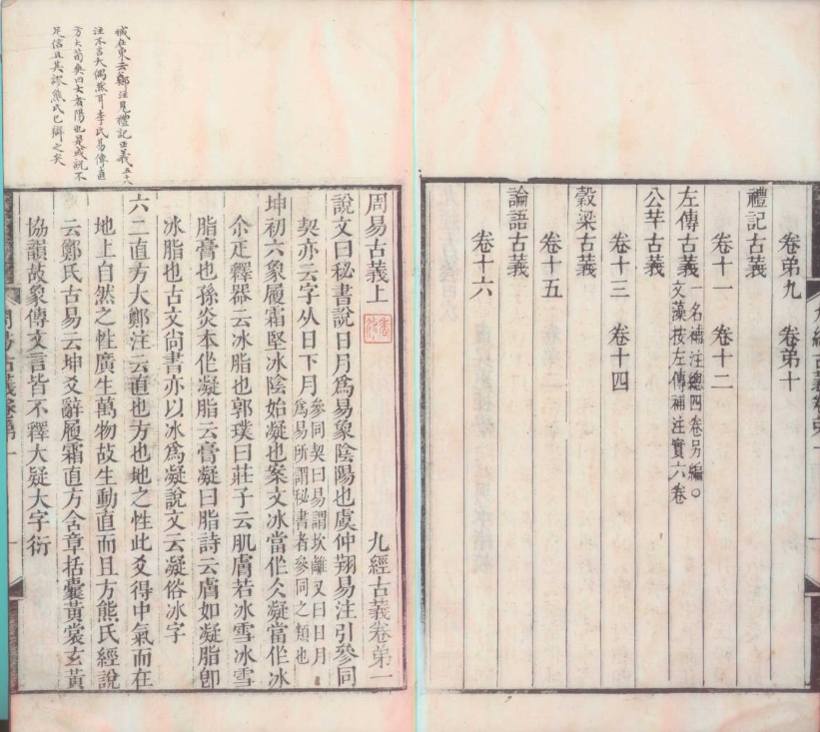 禮記古義
卷弟九　卷弟十
卷十一　卷十二
左傳古義一名補注總四卷另編○
文藻按左傳補注實六卷
公羊古義
卷十三　卷十四
穀梁古義
卷十五
論語古義
卷十六
周易古義上　九經古義卷弟一
說文曰秘書說日月爲易象陰陽也虞仲翔易注引參同
契亦云字从日下月參同契曰易謂坎離又曰日月
爲易所謂秘書者參同之類也
坤初六象履霜堅冰陰始凝也案文冰當作仌凝當作冰
尒疋釋器云冰脂也郭璞曰莊子云肌膚若冰雪冰雪
脂膏也孫炎本作凝脂云膏凝曰脂詩云膚如凝脂卽
冰脂也古文尙書亦以冰爲凝說文云凝俗冰字
六二直方大鄭注云直也方也地之性此爻得中氣而在
地上自然之性廣生萬物故生動直而且方熊氏經說
云鄭氏古易云坤爻辭履霜直方含章括囊黃裳玄黃
協韻故象傳文言皆不釋大疑大字衍
臧在東云鄭注見禮記正義五十八
注不言大偶然耳李氏易傳直
方大荀爽曰大者陽也是或說不
足信且其謬熊氏已辯之矣